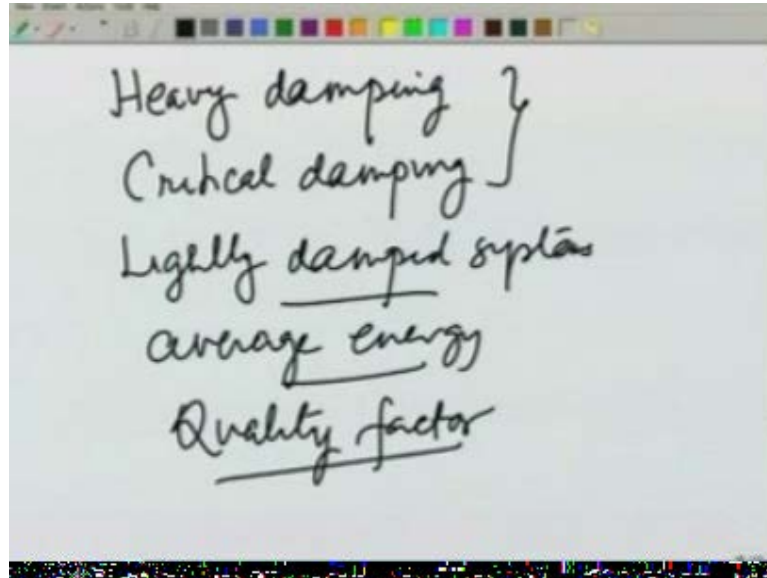 Heavy damping
Critical damping
Lightly damped systems
average energy
Quality factor